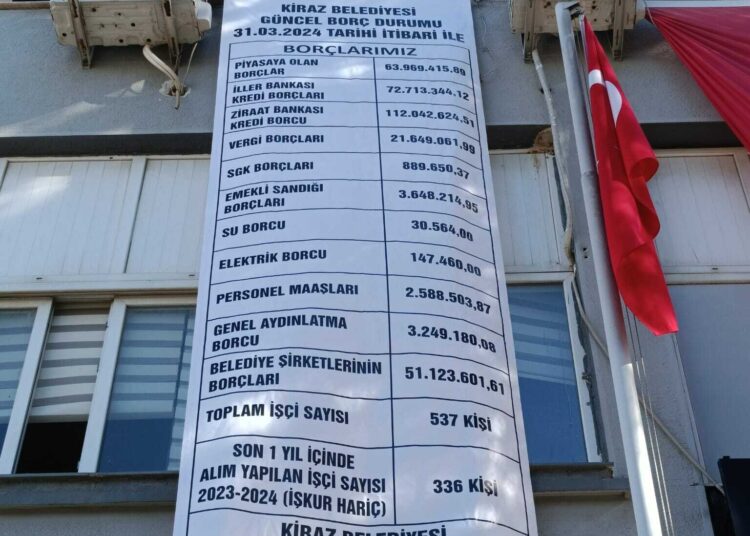 KİRAZ BELEDİYESİ
GÜNCEL BORÇ DURUMU
31.03.2024 TARİHİ İTİBARİ İLE
BORÇLARIMIZ
PİYASAYA OLAN
BORÇLAR
63.969.415.69
İLLER BANKASI
KREDİ BORÇLARI
72.713.344.12
ZİRAAT BANKASI
KREDİ BORCU
112.042.624,51
VERGİ BORÇLARI
21.649.061,99
SGK BORÇLARI
889.650,37
EMEKLİ SANDIĞI
BORÇLARI
3.648.214,95
SU BORCU
30.564,00
ELEKTRİK BORCU
147.460,00
PERSONEL MAAŞLARI
2.588.503,87
GENEL AYDINLATMA
BORCU
3.249.180,08
BELEDİYE ŞİRKETLERİNİN
BORÇLARI
51.123.601,61
TOPLAM İŞÇİ SAYISI
537 KİŞİ
SON 1 YIL İÇİNDE
ALIM YAPILAN İŞÇİ SAYISI
2023-2024 (İŞKUR HARİÇ)
336 KİŞİ
KİRAZ BELEDİYESİ